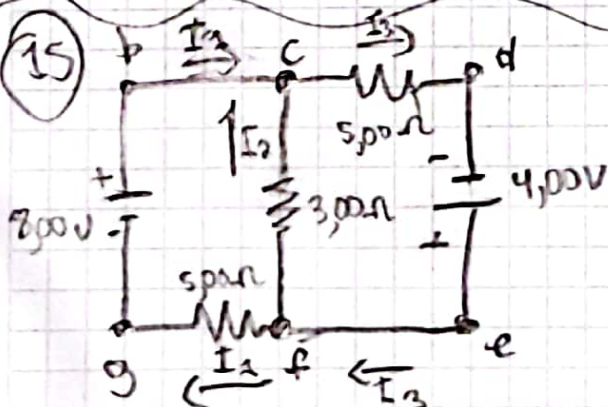 15
b I₁ c I₃ d
I₂ 5,00Ω
+ - 4,00V
8,00V 3,00Ω
- +
5,00Ω
g I₁ f I₃ e